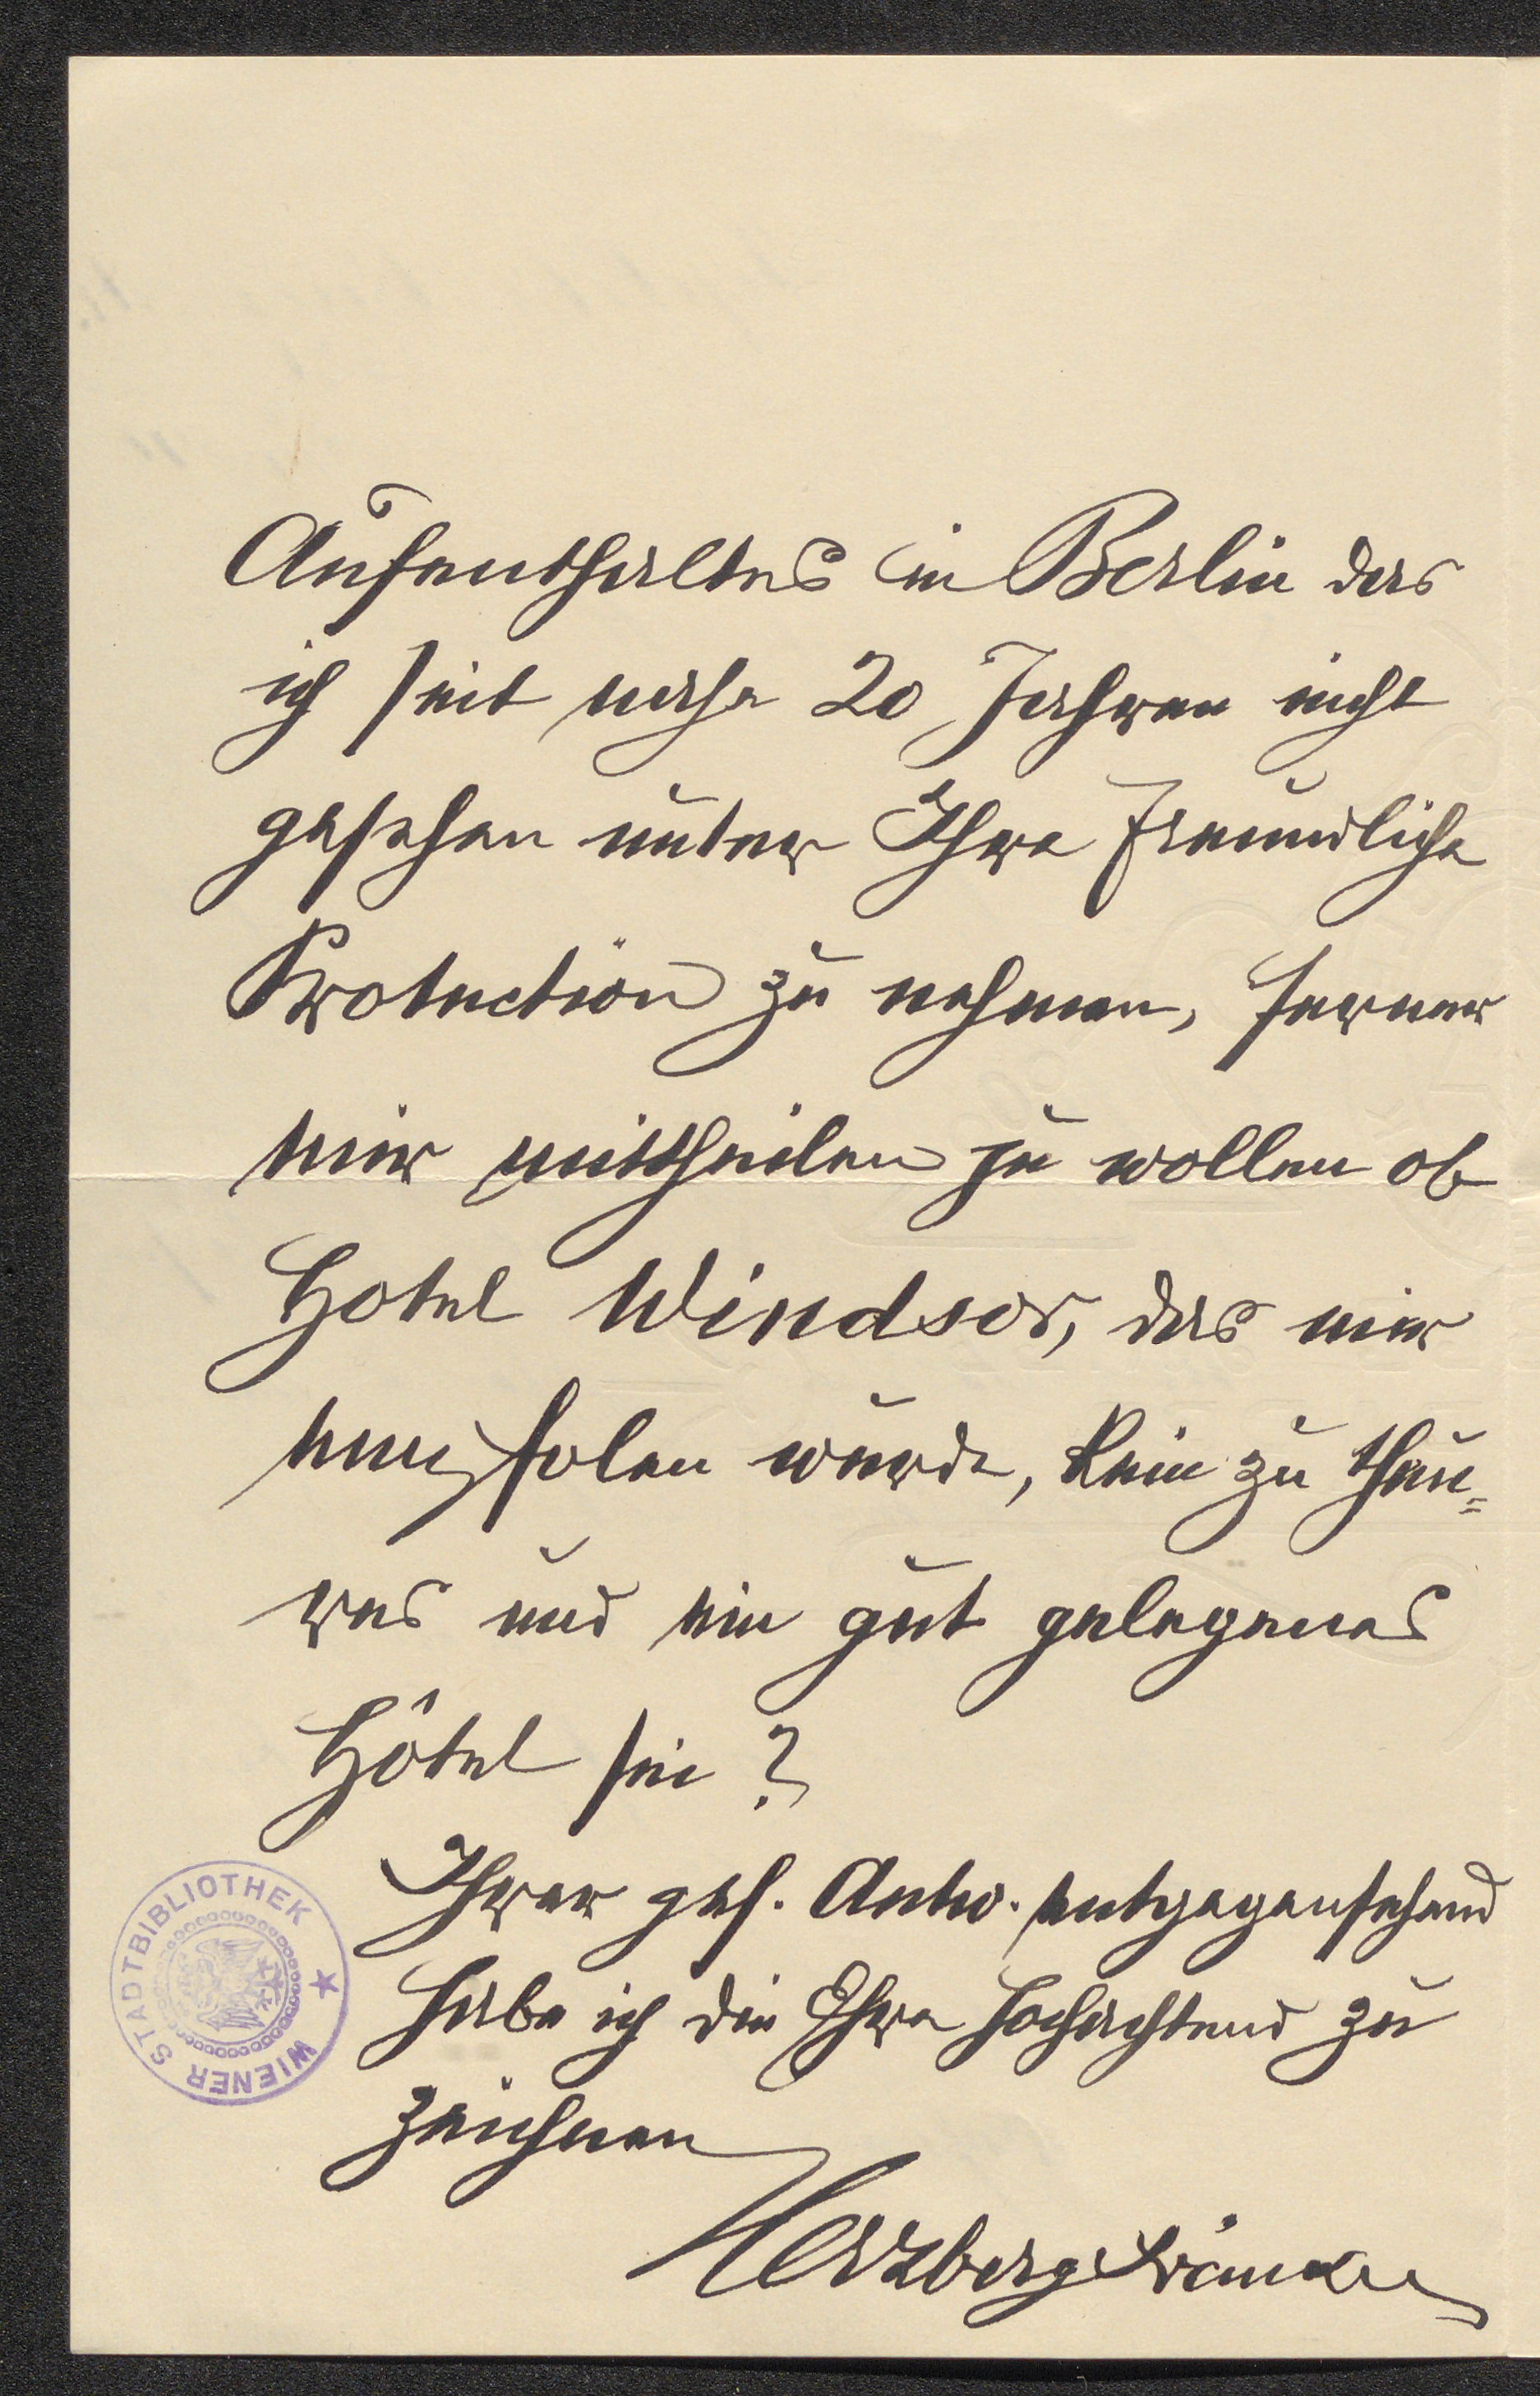 Aufenthaltes in Berlin das
ich seit nahe 20 Jahren nicht
gesehen unter Ihre freundliche
Protection zu nehmen, ferner
mir mittheilen zu wollen ob
Hotel Windsor, das mir
empfolen wurde, kein zu theu=
res und ein gut gelegenes
Hôtel sei?
Ihrer gef. Antw. entgegensehend
habe ich die Ehre hochachtend zu
zeichnen
HerzbergFränkel
WIENER STADTBIBLIOTHEK